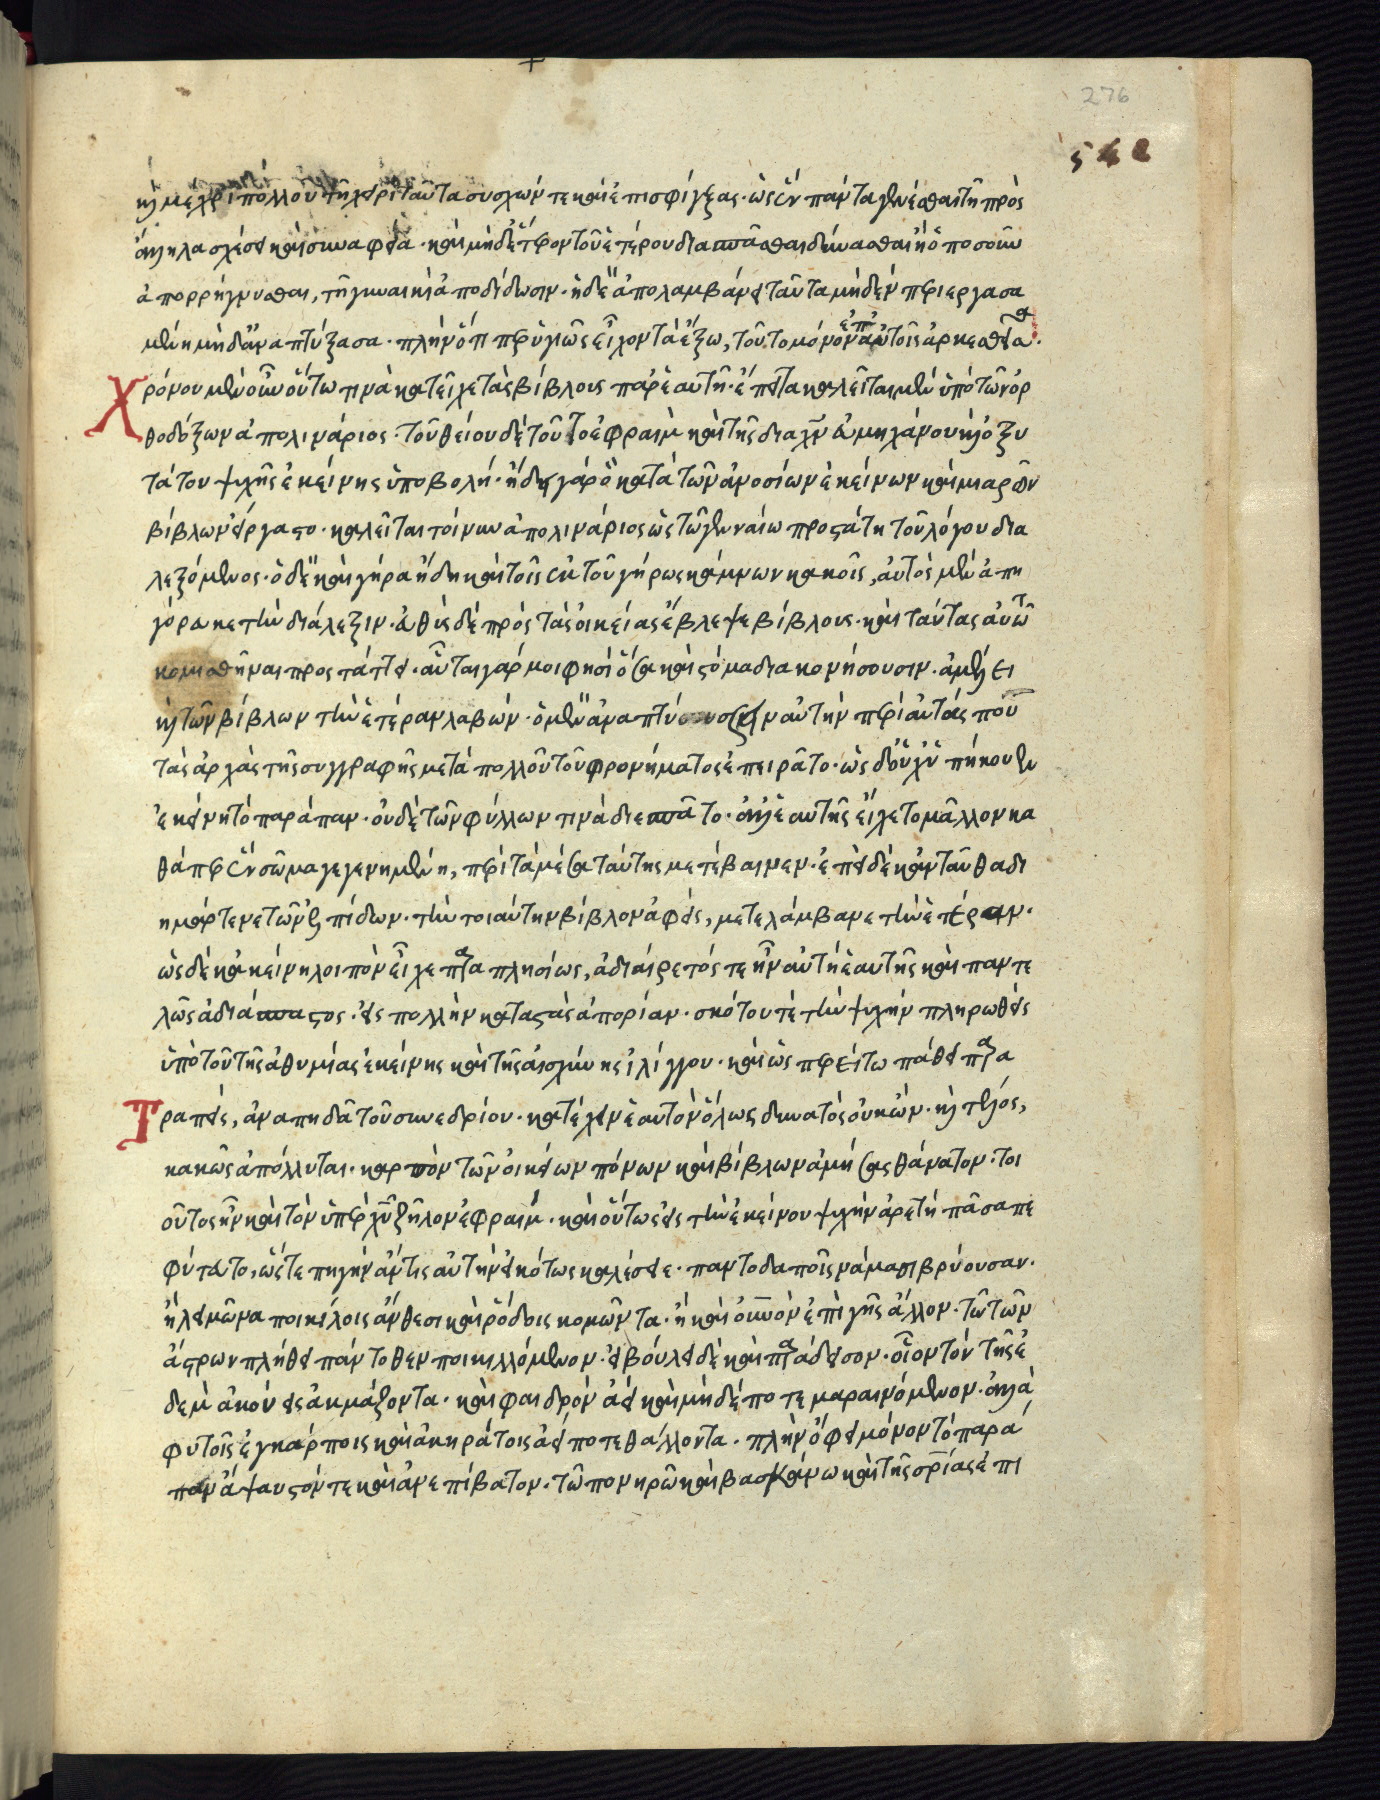 276
542
καὶ μέχρι πολλοῦ τῇ χειρὶ ταῦτα συσχών τε καὶ ἐπισφίγξας· ὡς ἓν πάντα γενέσθαι τῇ πρὸς
ἄλληλα σχέσει καὶ συναφείᾳ· καὶ μὴδὲ ἕτερον τοῦ ἑτέρου διασπᾶσθαι δύνασθαι ἢ ὁποσοῦν
ἀπορρήγνυσθαι, τῇ γυναικὶ ἀποδίδωσιν· ἡ δὲ ἀπολαμβάνει ταῦτα μηδὲν περιεργασα
μένη μὴδ' ἀναπτύξασα· πλὴν ὅτι περ ὑγιῶς εἶχον τὰ ἔξω, τοῦτο μόνον ἐπ' αὐτοῖς ἀρκεσθεῖσα·
Χρόνον μὲν οὖν οὕτω τινὰ κατεῖχε τὰς βίβλους παρ' ἑαυτῇ· ἔπειτα καλεῖται μὲν ὑπὸ τῶν ὀρ
θοδόξων ἀπολινάριος· τοῦ θείου δὲ τοῦτο ἐφραῒμ καὶ τῆς διὰ χν ἀμηχάνου καὶ ὀξυ
τάτου ψυχῆς ἐκείνης ὑποβολή· ᾔδει γὰρ ὃ κατὰ τῶν ἀνοσίων ἐκείνων καὶ μιαρῶν
βίβλων εἰργαστο· καλεῖται τοίνυν ἀπολινάριος ὡς τῷ γενναίῳ προστάτῃ τοῦ λόγου δια
λεξόμενος· ὁ δὲ καὶ γήρᾳ ἤδη καὶ τοῖς ἐκ τοῦ γήρως κάμνων κακοῖς, αὐτὸς μὲν ἀπη
γόρευκε τὴν διάλεξιν· εὐθὺς δὲ πρὸς τὰς οἰκείας ἔβλεψε βίβλους· καὶ ταύτας αὐτῷ
κομισθῆναι προστάττει· αὗται γάρ μοι φησὶ ὅσα καὶ στόμα διακονήσουσιν· ἀμέλει
καὶ τῶν βίβλων τὴν ἑτέραν λαβών· ὁ μὲν ἀναπτύσσειν αὐτὴν περὶ αὐτάς που
τὰς ἀρχὰς τῆς συγγραφῆς μετὰ πολλοῦ τοῦ φρονήματος ἐπειρᾶτο· ὡς δ' οὐχ ὑπήκουεν
ἐκείνη τὸ παράπαν· οὐδὲ τῶν φύλλων τινὰ διεσπᾶτο· ἀλλ' ἑαυτῆς εἴχετο μᾶλλον κα
θάπερ ἓν σῶμα γεγενημένη, περὶ τὰ μέσα ταύτης μετέβαινεν· ἐπεὶ δὲ κἀνταῦθα δι
ημάρτενε τῶν ἐλπίδων· τὴν τοιαύτην βίβλον ἀφεὶς, μετελάμβανε τὴν ἑτέραν·
ὡς δὲ κἀκείνη λοιπὸν εἶχε παραπλησίως, ἀδιαίρετός τε ἦν αὐτὴ ἑαυτῆς καὶ παντε
λῶς ἀδιάσπαστος· εἰς πολλὴν καταστὰς ἀπορίαν· σκότου τὲ τὴν ψυχὴν πληρωθεὶς
ὑπὸ τοῦ τῆς ἀθυμίας ἐκείνης καὶ τῆς αἰσχύνης ἰλίγγου· καὶ ὡς περ εἴτω πάθει παρα
Τραπεὶς, ἀναπηδᾷ τοῦ συνεδρίου· κατέχειν ἑαυτὸν ὅλως δυνατὸς οὐκ ὤν· καὶ τέλος,
κακῶς ἀπόλλυται· καρπὸν τῶν οἰκείων πόνων καὶ βίβλων ἀμήσας θάνατον· τοι
οῦτος ἦν καὶ τὸν ὑπὲρ χυ ζῆλον ἐφραΐμ· καὶ οὕτως εἰς τὴν ἐκείνου ψυχὴν ἀρετὴ πᾶσα πε
φύτευτο, ὥστε πηγὴν ἄν τις αὐτὴν εἰκότως καλέσειε· παντοδαποῖς νάμασι βρύουσαν·
ἢ λειμῶνα ποικίλοις ἄνθεσι καὶ ῥόδοις κομῶντα· ἢ καὶ οὐνὸν ἐπὶ γῆς ἄλλον· τῷ τῶν
ἄστρων πλήθει πάντοθεν ποικιλλόμενον· εἰ βούλει δὲ καὶ παράδεισον· οἷον τὸν τῆς ἐ
δὲμ ἀκούεις ἀκμάζοντα· καὶ φαιδρὸν ἀεὶ καὶ μὴδέποτε μαραινόμενον· ἀλλὰ
φυτοῖς ἐγκάρποις καὶ ἀκηράτοις ἀεί ποτε θάλλοντα· πλὴν ὄφει μόνον τὸ παρά
παν ἄψαυστόν τε καὶ ἀνεπίβατον· τῷ πονηρῷ καὶ βασκάνῳ καὶ τῆς σρίας ἐπι